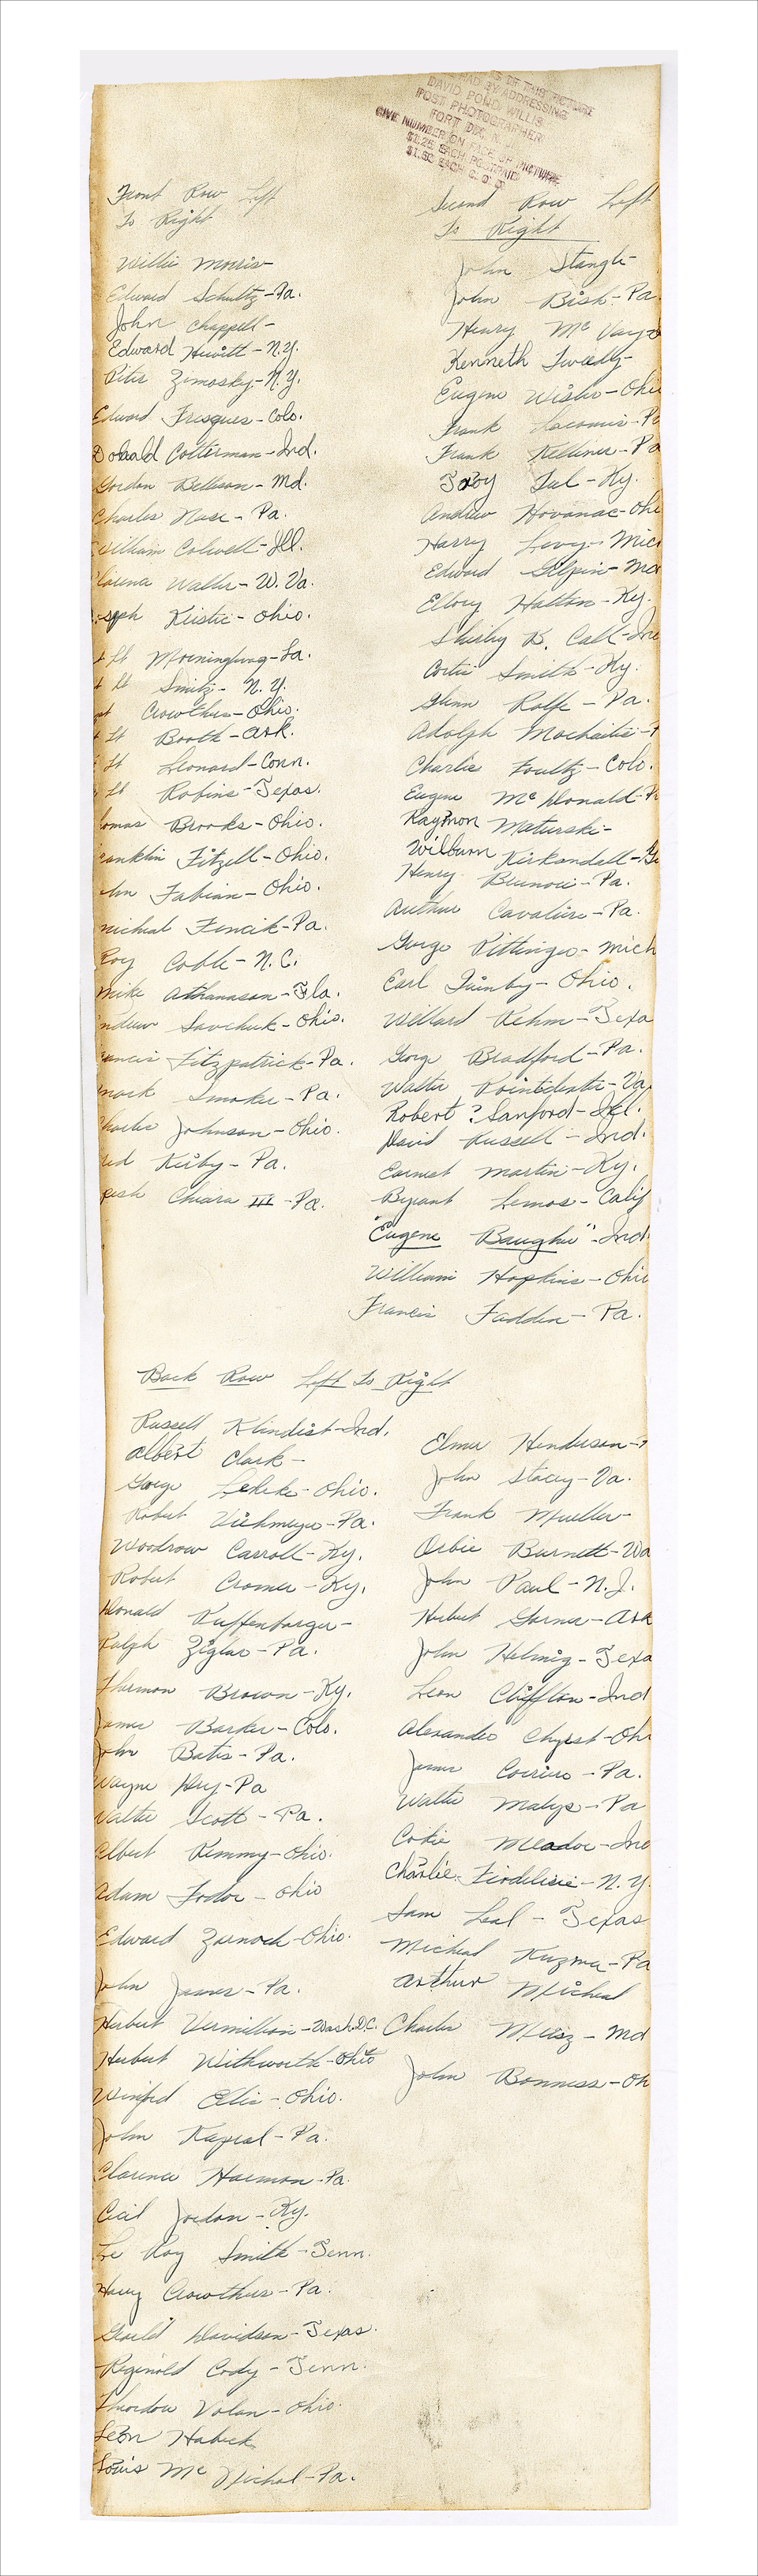 S OF THIS PICTURE
HAD BY ADDRESSING
DAVID POND WILLIS
POST PHOTOGRAPHER
FORT DIX,
GIVE NUMBER ON FACE OF PICTURE
$1.25 EACH POSTPAID
$1.50 EACH C.O.D.
Front Row Left
To Right
Willie Morris
Edward Schultz-Pa.
John Chappell-
Edward Hewitt-N.Y.
Peter Zimosky-N.Y.
Edward Fresques-Colo.
Donald Cotterman-Ind.
Gordon Bellison-Md.
Charles Nase-Pa.
William Colwell-Ill.
Walls-W.Va.
Joseph Keistic-Ohio.
Lt Morningweg-La.
Lt Smitz-N.Y.
Crowthers-Ohio.
Lt Booth-Ark.
Lt Leonard-Conn.
Lt Robins-Texas.
omas Brooks-Ohio.
ranklin Fitzell-Ohio.
hn Fabian-Ohio.
micheal Fencik-Pa.
Roy Coble-N.C.
Mike Athanason-Fla.
ndrew Savchuk-Ohio.
rancis Fitzpatrick-Pa.
mark Smoker-Pa.
harles Johnson-Ohio.
red Kirby-Pa.
Chiara III-Pa.
Second Row Left
To Right
John Stangle-
John Bish-Pa.
Henry Mc Vay-O
Kenneth Tweedy-
Eugene Wisler-Ohi
Frank Lacomis-Pa
Frank Kelliner-Pa
Toby Tul-Ky.
Andrew Hovanac-Ohi
Harry Levy-Mic
Edward Gilpin-Md
Ellory Halton-Ky.
Shirley B. Call-Ind
Cortis Smith-Ky.
Glenn Rolfe-Pa.
Adolph Mochaitis-
Charlie Foultz-Colo.
Eugene Mc Donald-P
Raymon Maturski-
Wilburn Kirkandall-Ge
Henry Brunoci-Pa.
Arthur Cavaliere-Pa.
George Kittinger-Mich
Earl Quinby-Ohio.
Willard Rehm-Texa
George Bradford-Pa.
Walter Pointdexter-Va.
Robert ? Sanford-Ill.
David Russell-Ind.
Earnest Martin-Ky.
Byrant Lemos-Calif
"Eugene Baugher"-Ind.
William Hopkins-Ohio
Francis Fadden-Pa.
Back Row Left To Right
Russell Klindist-Ind.
Albert Clark-
George Lekike-Ohio.
Robert Viehmeyer-Pa.
Woodrow Carroll-Ky.
Robert Cromer-Ky.
Donald Puffenbarger-
Ralph Ziglar-Pa.
Thermon Brown-Ky.
James Barker-Colo.
John Batis-Pa.
Wayne Hey-Pa
Walter Scott-Pa.
Albert Kimmy-Ohio.
Adam Fodor-Ohio
Edward Zarnoch-Ohio.
John Jasner-Pa.
Herbert Vermillion-Wash.D.C.
Hubert Withworth-Ohio
Winfred Elis-Ohio.
John Kapral-Pa.
Clarence Harmon-Pa.
Cecil Jordan-Ky.
Le Roy Smith-Tenn.
Harry Crowthers-Pa.
Gerald Davidson-Texas.
Reginold Cody-Tenn.
Theordore Volan-Ohio.
Leon Habeck
Louis Mc Nichol-Pa.
Elmer Henderson-
John Stacey-Va.
Frank Mueller-
Orbie Burnett-Wa
John Paul-N.J.
Herbert Garner-Ark
John Helmig-Texa
Leon Cliffton-Ind
Alexander Chyest-Ohi
James Corriero-Pa.
Walter Malys-Pa
Cokie Meador-Ind
Charlie Firdelisie-N.Y.
Sam Leal-Texas
Micheal Kuzma-Pa
Arthur Micheal
Charles Meisz-Md
John Bonness-Oh